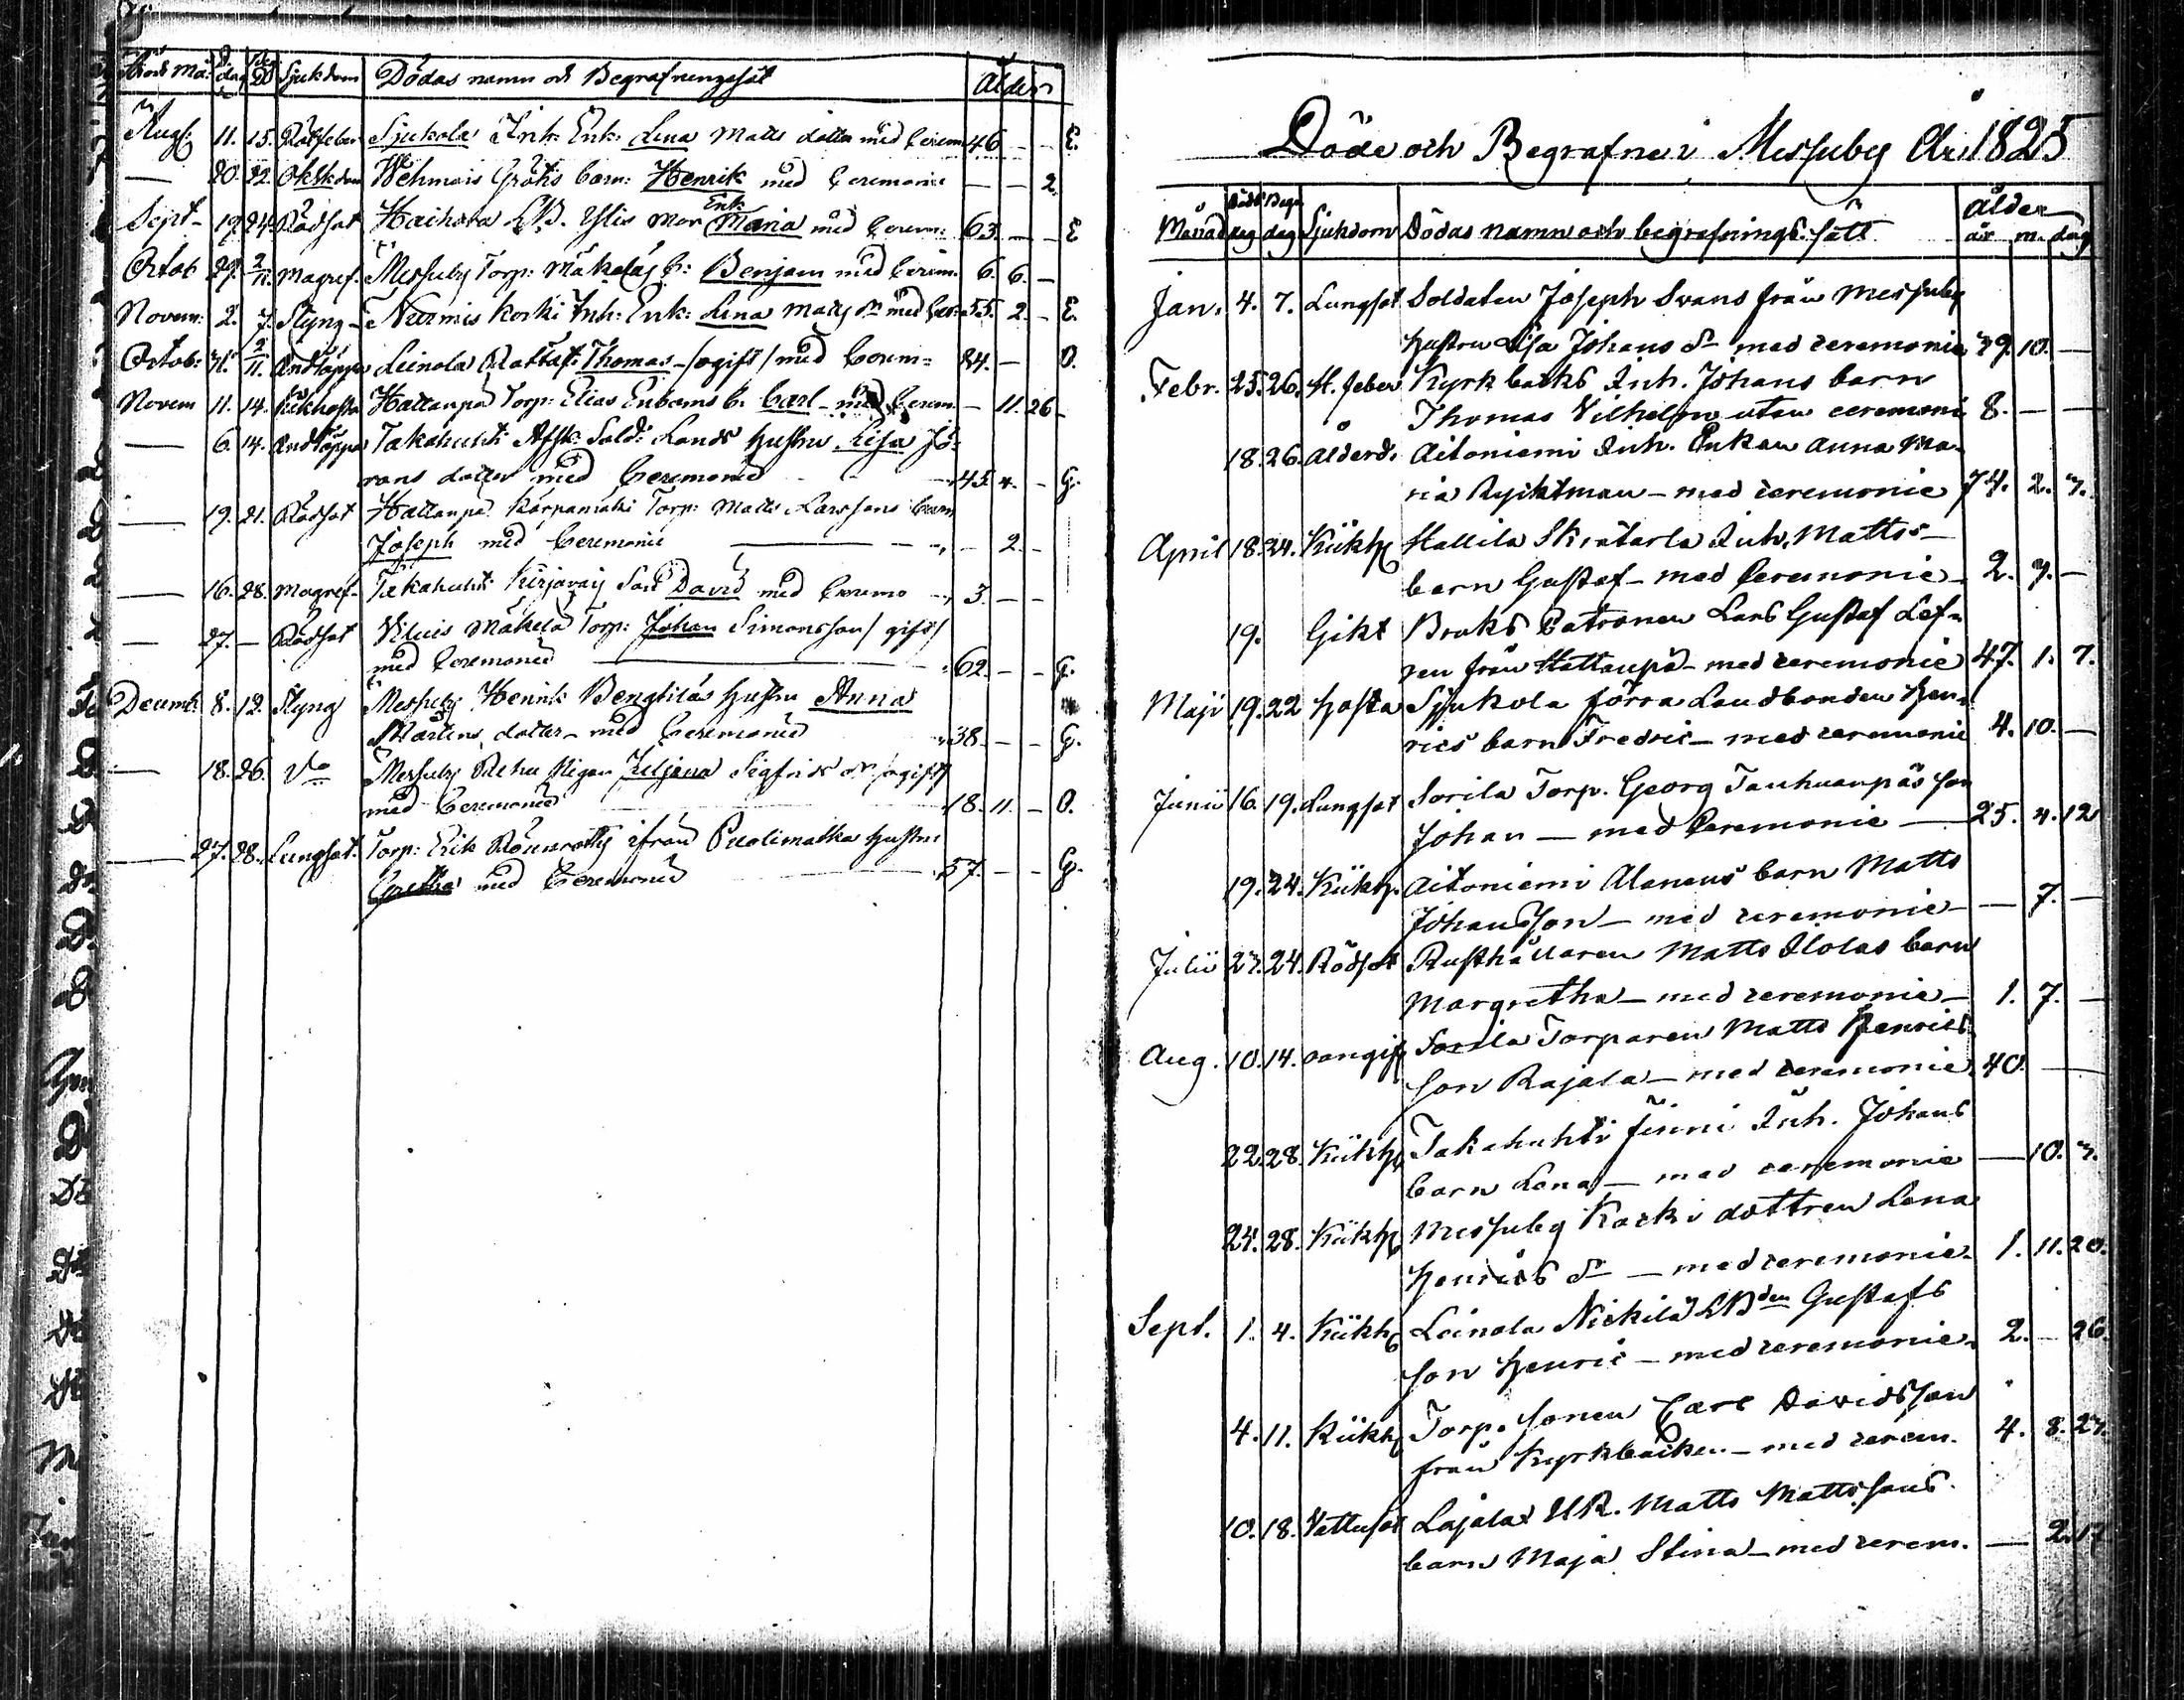 Dödas namn och Begrafningssät Ålder
Aug: 11. 15. Rötfeber Sjukola Inh: Enk: Lena Matts dotter med Cerem 46 — — E.
— 20. 22. Okk dom Wehmais Gråts barn: Henrik med Ceremonie — — 2.
Sept- 19. 24. Rödsot Haihara LB. Ylis Mor Enk: Maria med Cerem: 63. — — E
Octob 29. 2/11. Magref. Messuby Torp: Mäkeläs b: Benjam med Cerem. 6. 6. —
Novem: 2. 7. Styng - Nurmis Korki Inh: Enk: Lena Matts dr med Cer: 55. 2. — E.
Octob: 31. 2/11. Andtäppa Leinola Thomas - /ogift/ med Cerem= 24. — O.
Novem 11. 14. Kikhosta Hattanpä Torp: Elias Enboms b. Carl - med Cerem. — 11. 26 -
— 6. 14. Andtäppa Takahuhti Afsk: Sold: Lands hustru Lisa Jö-
rans dotter med Ceremonie 45. 4. — G.
— 19. 21. Rödsot Hattanpä Kärpämäki Torp: Matts Larssons barn
Joseph med Ceremonie — 2. -
— 16. 28. Magref- Takahuhti Kirjavais Son David med Ceremo 3. — —
— 27. — Rödsot Viluis Mäkelä Torp: Johan Simonsson / gift /
med Ceremonie 62. — — G.
Decemb: 8. 12. Styng Messuby Henrik Bengtiläs hustru Anna
Mårtens dotter - med Ceremonie 38. — — G.
— 18. 26. do Messuby Pigan Juljana Sigfrids dr /ogift/
med Ceremonie 18. 11. — O.
— 27. 28. Lungsot. Torp: Erik Rönnrotts ifrån Puolimatka hustru
Gretha med Ceremonie 57. — — G.
Döde och Begrafne i Messuby År 1825
Månad Döds dag Begr dag Sjukdom Dödas namn och begrafnings sätt Ålder år m. dag
Jan. 4. 7. Lungsot Soldaten Joseph Svans från Messuby
hustru Lisa Johans dr med ceremonie 39. 10. —
Febr. 25. 26. H. feber Kyrkbacks Inh. Johans barn
Thomas Vilhelm utan ceremoni 8. — —
18. 26. Ålderd. Aitoniemi Inh. Enkan Anna Ma-
ria Ryiktman - med ceremonie 74. 2. 3.
April 18. 24. Kikh Hallila Skrätarla Inh. Matts
barn Gustaf - med Ceremonie 2. 9. —
19. Gikt Bruks Patronen Lars Gustaf Lef-
ren från Hattanpä - med ceremonie 47. 1. 7.
Maji 19. 22 Hosta Sjukola förra Landbonden Hen-
rics barn Fredric - med ceremonie 4. 10. —
Junii 16. 19. Lungsot Sorila Torp. Georg Tauhuanpäs son
Johan — med Ceremonie — 25. 4. 12
19. 24. Kikh. Aitoniemi Alaneus barn Matts
Johansson - med ceremonie — 7. —
Julii 23. 24. Rödsot Rusthållaren Matts Ilolas barn
Margretha - med ceremonie - 1. 7. —
Aug. 10. 14. Sorila Torparen Matts Henrics
son Rajala - med ceremonie. 40. — —
22. 28. Kikh Takahuhti Finni Inh. Johans
barn Lena - med ceremonie — 10. 3.
24. 28. Kikh Messuby Korki dottren Lena
Henrics dr - med ceremonie. 1. 11. 20.
Sept. 1. 4. Kikh Leinola Nickilä LBden Gustafs
son Henric - med ceremonie. 2. — 26.
4. 11. Kikh Torp. sonen Carl Davidsson
från Kyrkbacken - med cerem. 4. 8. 23.
10. 18. Vattusot Lajalax UR. Matts Mattssons
barn Maja Stina - med cerem. — 2. 17